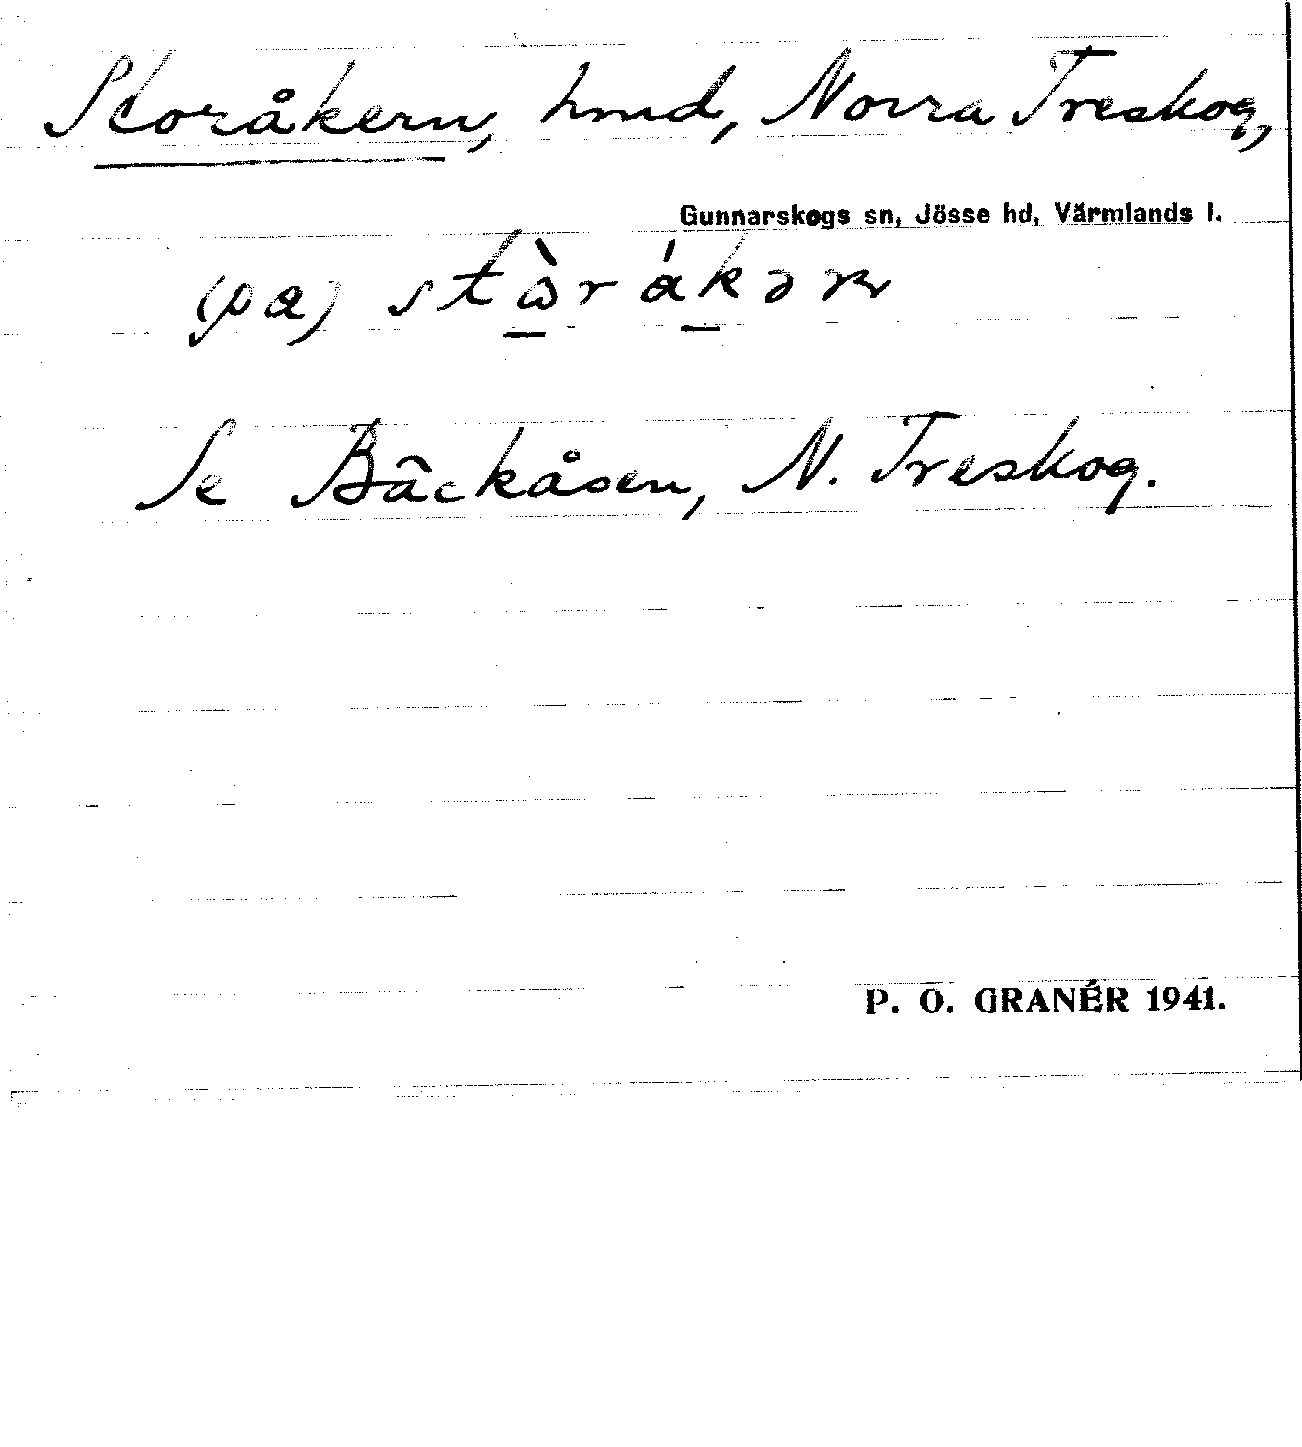 Storåkern, hmd, Norra Treskog,
Gunnarskogs sn, Jösse hd, Värmlands l.
(pa) stɷ̀rákəɳ
Se Bäckåsen, N. Treskog.
P. O. GRANÉR 1941.